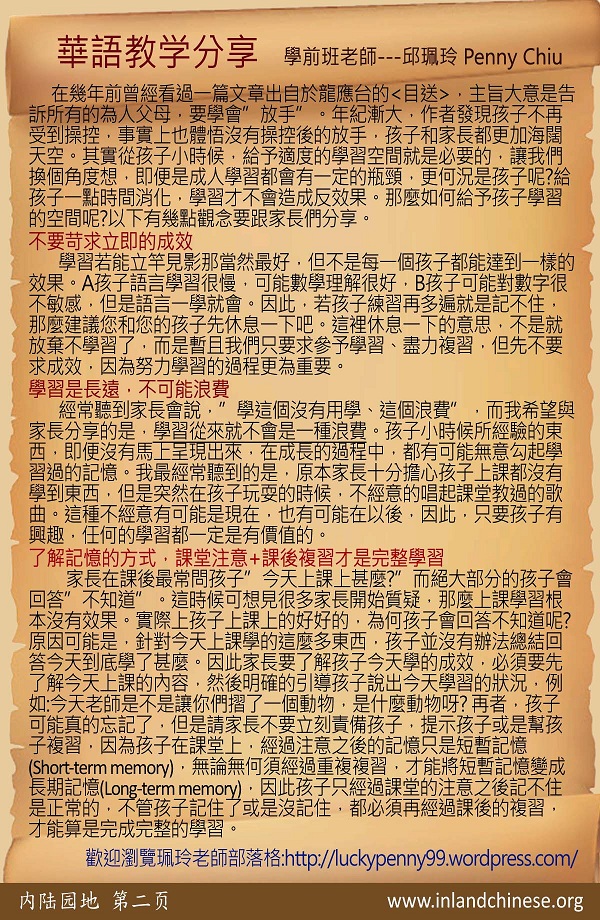 華語教学分享 學前班老師---邱珮玲 Penny Chiu
在幾年前曾經看過一篇文章出自於龍應台的<目送>，主旨大意是告
訴所有的為人父母，要學會”放手”。年紀漸大，作者發現孩子不再
受到操控，事實上也體悟沒有操控後的放手，孩子和家長都更加海闊
天空。其實從孩子小時候，給予適度的學習空間就是必要的，讓我們
換個角度想，即便是成人學習都會有一定的瓶頸，更何況是孩子呢?給
孩子一點時間消化，學習才不會造成反效果。那麼如何給予孩子學習
的空間呢?以下有幾點觀念要跟家長們分享。
不要苛求立即的成效
學習若能立竿見影那當然最好，但不是每一個孩子都能達到一樣的
效果。A孩子語言學習很慢，可能數學理解很好，B孩子可能對數字很
不敏感，但是語言一學就會。因此，若孩子練習再多遍就是記不住，
那麼建議您和您的孩子先休息一下吧。這裡休息一下的意思，不是就
放棄不學習了，而是暫且我們只要求參予學習、盡力複習，但先不要
求成效，因為努力學習的過程更為重要。
學習是長遠，不可能浪費
經常聽到家長會說，”學這個沒有用學、這個浪費”，而我希望與
家長分享的是，學習從來就不會是一種浪費。孩子小時候所經驗的東
西，即便沒有馬上呈現出來，在成長的過程中，都有可能無意勾起學
習過的記憶。我最經常聽到的是，原本家長十分擔心孩子上課都沒有
學到東西，但是突然在孩子玩耍的時候，不經意的唱起課堂教過的歌
曲。這種不經意有可能是現在，也有可能在以後，因此，只要孩子有
興趣，任何的學習都一定是有價值的。
了解記憶的方式，課堂注意+課後複習才是完整學習
家長在課後最常問孩子”今天上課上甚麼?”而絕大部分的孩子會
回答”不知道”。這時候可想見很多家長開始質疑，那麼上課學習根
本沒有效果。實際上孩子上課上的好好的，為何孩子會回答不知道呢?
原因可能是，針對今天上課學的這麼多東西，孩子並沒有辦法總結回
答今天到底學了甚麼。因此家長要了解孩子今天學的成效，必須要先
了解今天上課的內容，然後明確的引導孩子說出今天學習的狀況，例
如:今天老師是不是讓你們摺了一個動物，是什麼動物呀? 再者，孩子
可能真的忘記了，但是請家長不要立刻責備孩子，提示孩子或是幫孩
子複習，因為孩子在課堂上，經過注意之後的記憶只是短暫記憶
(Short-term memory)，無論無何須經過重複複習，才能將短暫記憶變成
長期記憶(Long-term memory)，因此孩子只經過課堂的注意之後記不住
是正常的，不管孩子記住了或是沒記住，都必須再經過課後的複習，
才能算是完成完整的學習。
歡迎瀏覽珮玲老師部落格:http://luckypenny99.wordpress.com/
内陆园地 第二页 www.inlandchinese.org